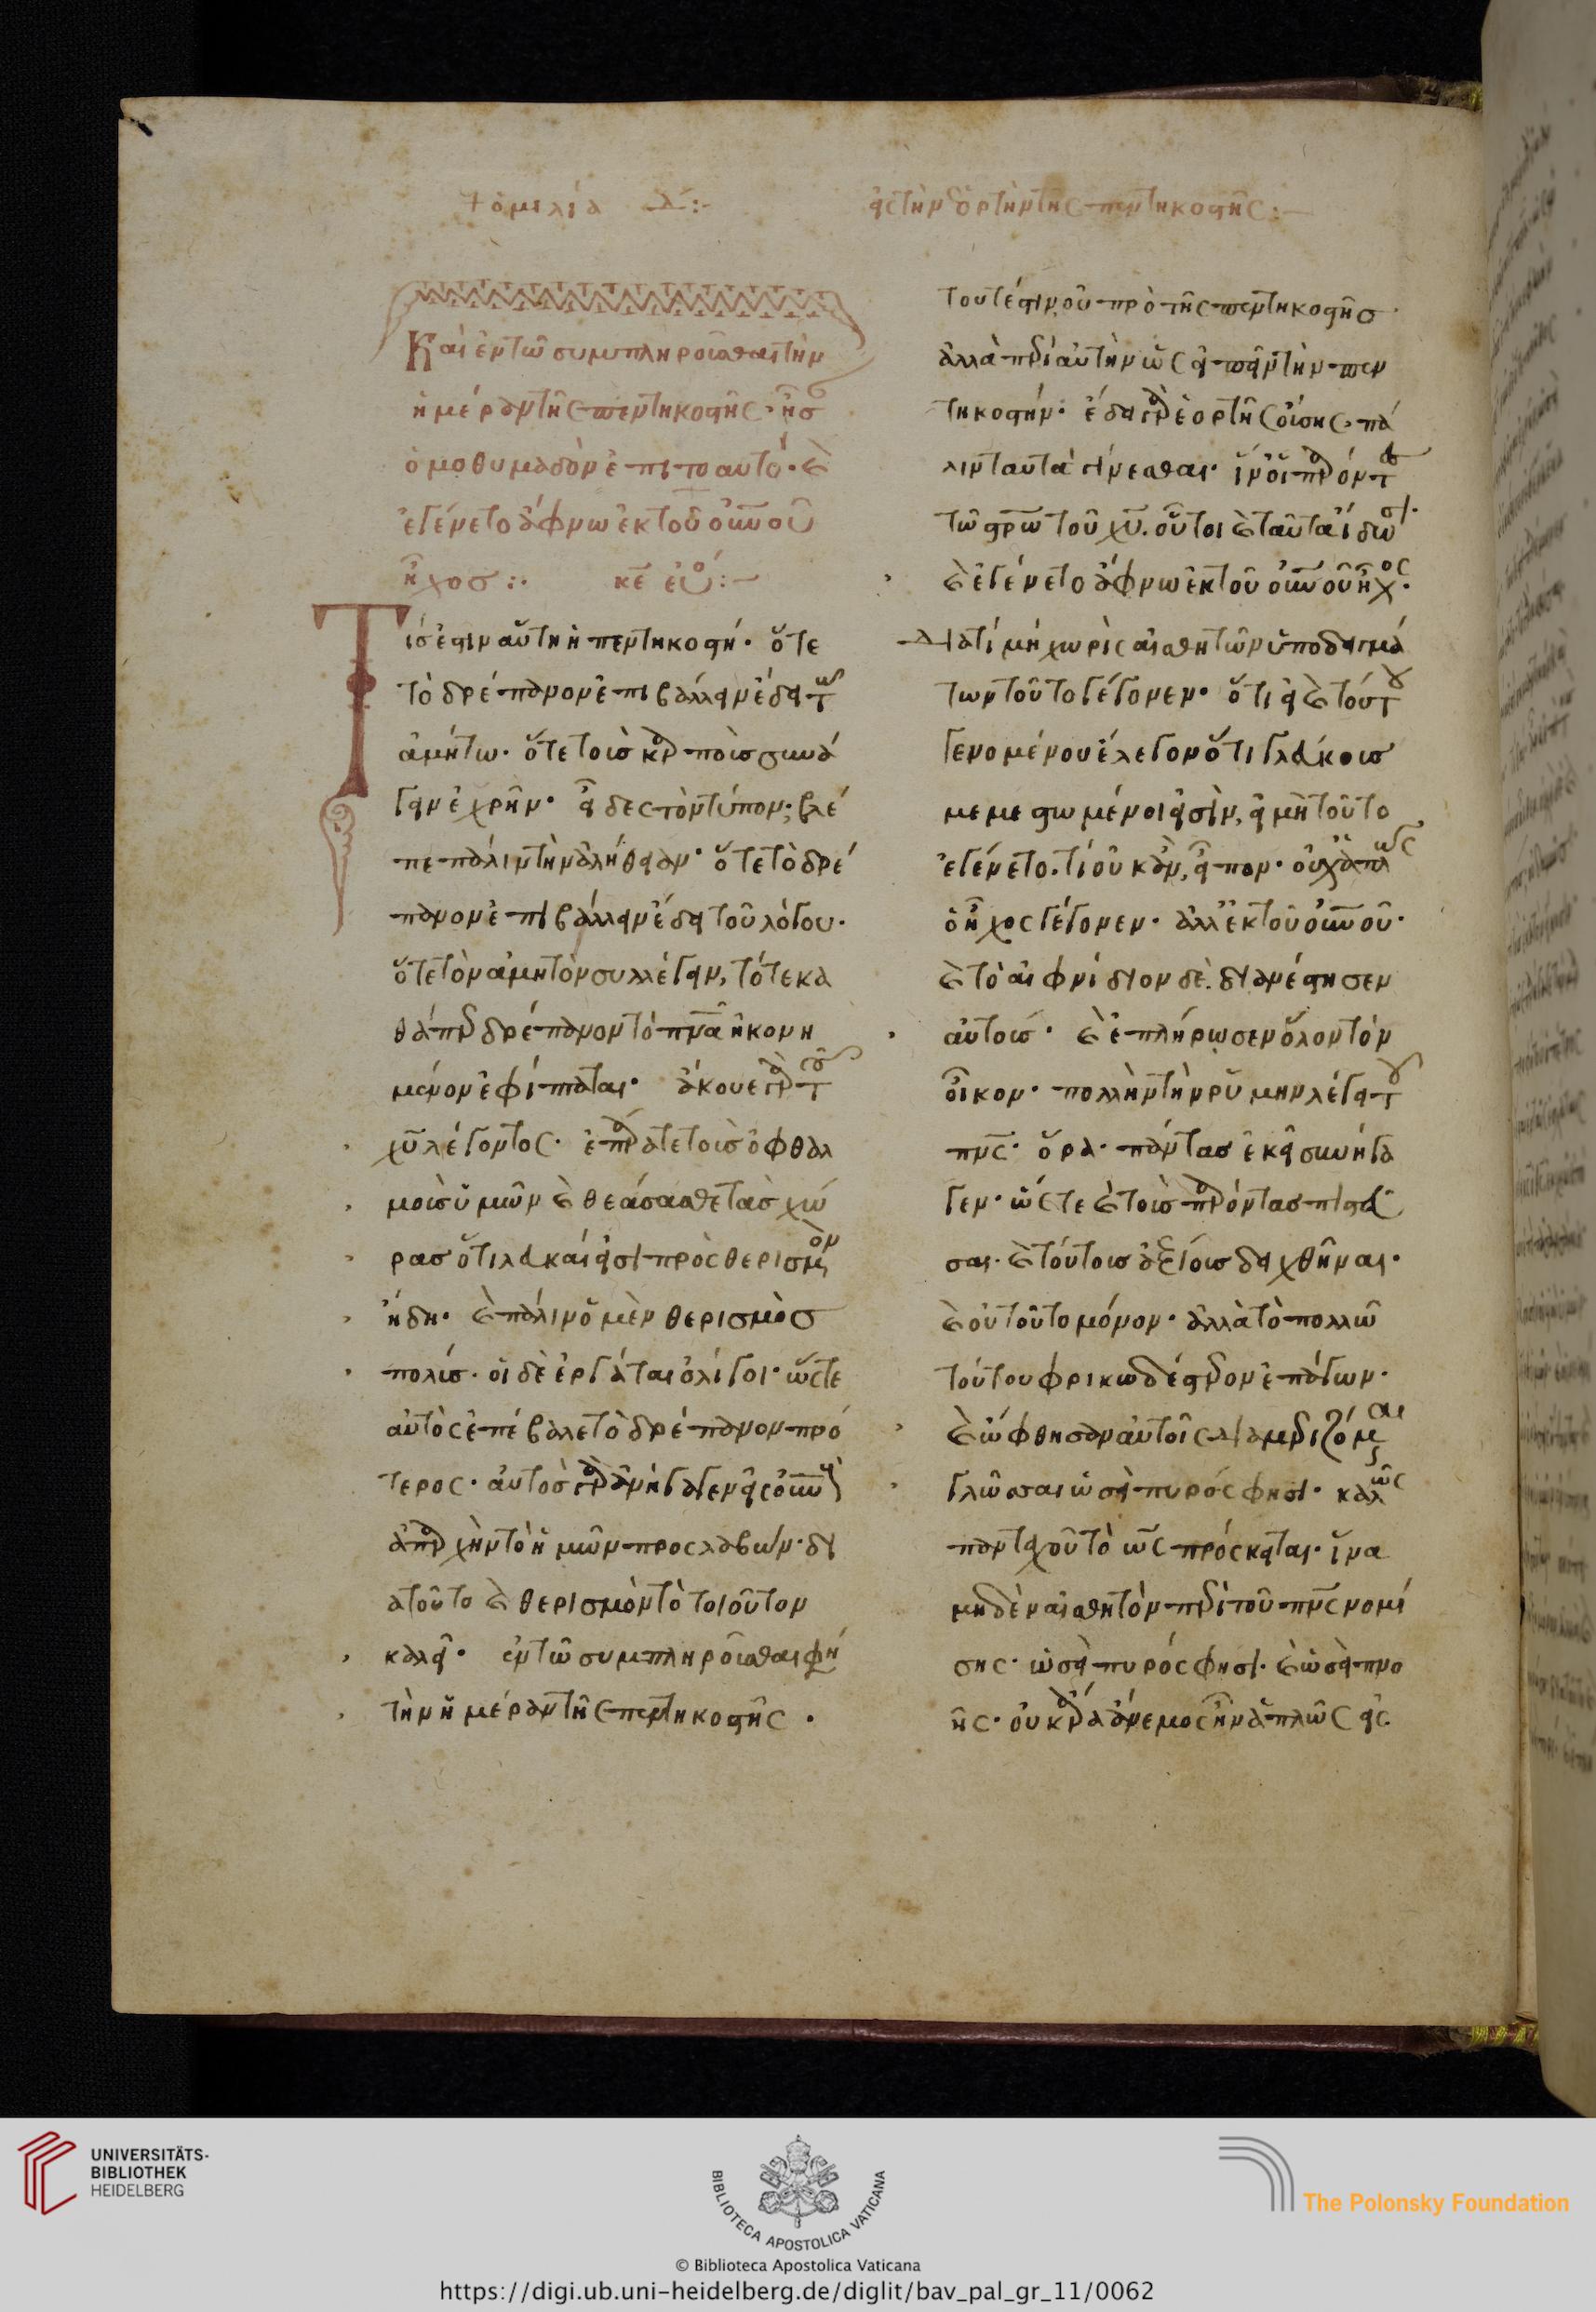 + ὁμιλία δ :-
εἰς τὴν ἑορτὴν τῆς πεντηκοστῆς :-
Καὶ ἐν τῶ συμπληροῦσθαι τὴν
ἡμέραν τῆς πεντηκοστῆς· ἦσ
ὁμοθυμαδὸν ἐπιτοαυτό· καὶ
ἐγένετο ἄφνω ἐκ τοῦ οὐνοῦ
ἦχοσ :. κε :-
Τίσ ἐστιν αὕτη ἡ πεντηκοστή· ὅτε
τὸ δρέπανον ἐπιβάλλειν ἔδει τῶ
ἀμήτω· ὅτε τοὺσ καρποὺσ συνά
γειν ἐχρῆν· εἶδες τὸν τύπον; βλέ
πε πάλιν τὴν ἀλήθειαν· ὅτε τὸ δρέ
πανον ἐπιβάλλειν ἔδει τοῦ λόγου·
ὅτε τὸν ἀμητὸν συλλέγειν, τότε κα
θάπερ δρέπανον τὸ πνα ἠκονη
μένον ἐφίπταται· ἄκουε γὰρ τοῦ
χυ λέγοντος· ἐπάρατε τοὺσ ὀφθαλ
μοὺσ ὑμῶν καὶ θεάσασθε τὰσ χώ
ρασ ὅτι λευκαί εἰσι πρὸς θερισμὸν
ἤδη· καὶ πάλιν ὁ μὲν θερισμὸσ
πολύσ· οἱ δὲ ἐργάται ὀλίγοι· ὥστε
αὐτὸς ἐπέβαλε τὸ δρέπανον πρό
τερος· αὐτὸσ γὰρ ἀνήγαγεν εἰς οὐνοὺς
ἀπαρχὴν τὸ ἡμῶν προσλαβών· δι
ατοῦτο καὶ θερισμὸν τὸ τοιοῦτον
καλεῖ· ἐν τῶ συμπληροῦσθαι φη
τὴν ἡμέραν τῆς πεντηκοστῆς·
τουτέστιν, οὐ πρὸ τῆς πεντηκοστῆσ
ἀλλὰ περὶ αὐτὴν ὡς εἰπεῖν τὴν πεν
τηκοστήν· ἔδει γὰρ ἑορτῆς οὔσης, πά
λιν ταῦτα γίνεσθαι· ἵν' οἱ παρόντες
τῶ στρω τοῦ χυ. οὗτοι καὶ ταῦτα ἴδωσι·
καὶ ἐγένετο ἄφνω ἐκ τοῦ οὐνοῦ ἦχος·
Διατί μὴ χωρὶς αἰσθητῶν ὑποδειγμά
των τοῦτο γέγονεν· ὅτι εἰ καὶ τούτου
γενομένου ἔλεγον ὅτι γλεύκουσ
μεμεστωμένοι εἰσὶν, εἰ μὴ τοῦτο
ἐγένετο. τί οὐκ ἂν, εἶπον· οὐχ ἁπλῶς
ὁ ἦχος γέγονεν· ἀλλ' ἐκ τοῦ οὐνοῦ·
καὶ τὸ αἰφνίδιον δὲ. διανέστησεν
αὐτούσ· καὶ ἐπλήρωσεν ὅλον τὸν
οἶκον· πολλὴν τὴν ρύμην λέγει τοῦ
πνς· ὅρα· πάντασ ἐκεῖ συνήγα
γεν· ὥστε καὶ τοὺσ παρόντασ πιστεῦ
σαι· καὶ τούτουσ ἀξίουσ δειχθῆναι·
καὶ οὐ τοῦτο μόνον· ἀλλὰ τὸ πολλῶ
τούτου φρικωδέστερον ἐπάγων·
καὶ ὤφθησαν αὐτοῖς διαμεριζόμεναι
γλῶσσαι ὡσεὶ πυρός φησι· καλῶς
πανταχοῦ τὸ ὡς πρόσκειται· ἵνα
μηδὲν αἰσθητὸν περὶ τοῦ πνς νομί
σης· ὡσεὶ πυρός φησι· καὶ ὡσεὶ πνο
ῆς· οὐκ ἄρα ἄνεμος ἦν ἁπλῶς εἰς
UNIVERSITÄTS-
BIBLIOTHEK
HEIDELBERG
BIBLIOTECA APOSTOLICA VATICANA
The Polonsky Foundation
© Biblioteca Apostolica Vaticana
https://digi.ub.uni-heidelberg.de/diglit/bav_pal_gr_11/0062